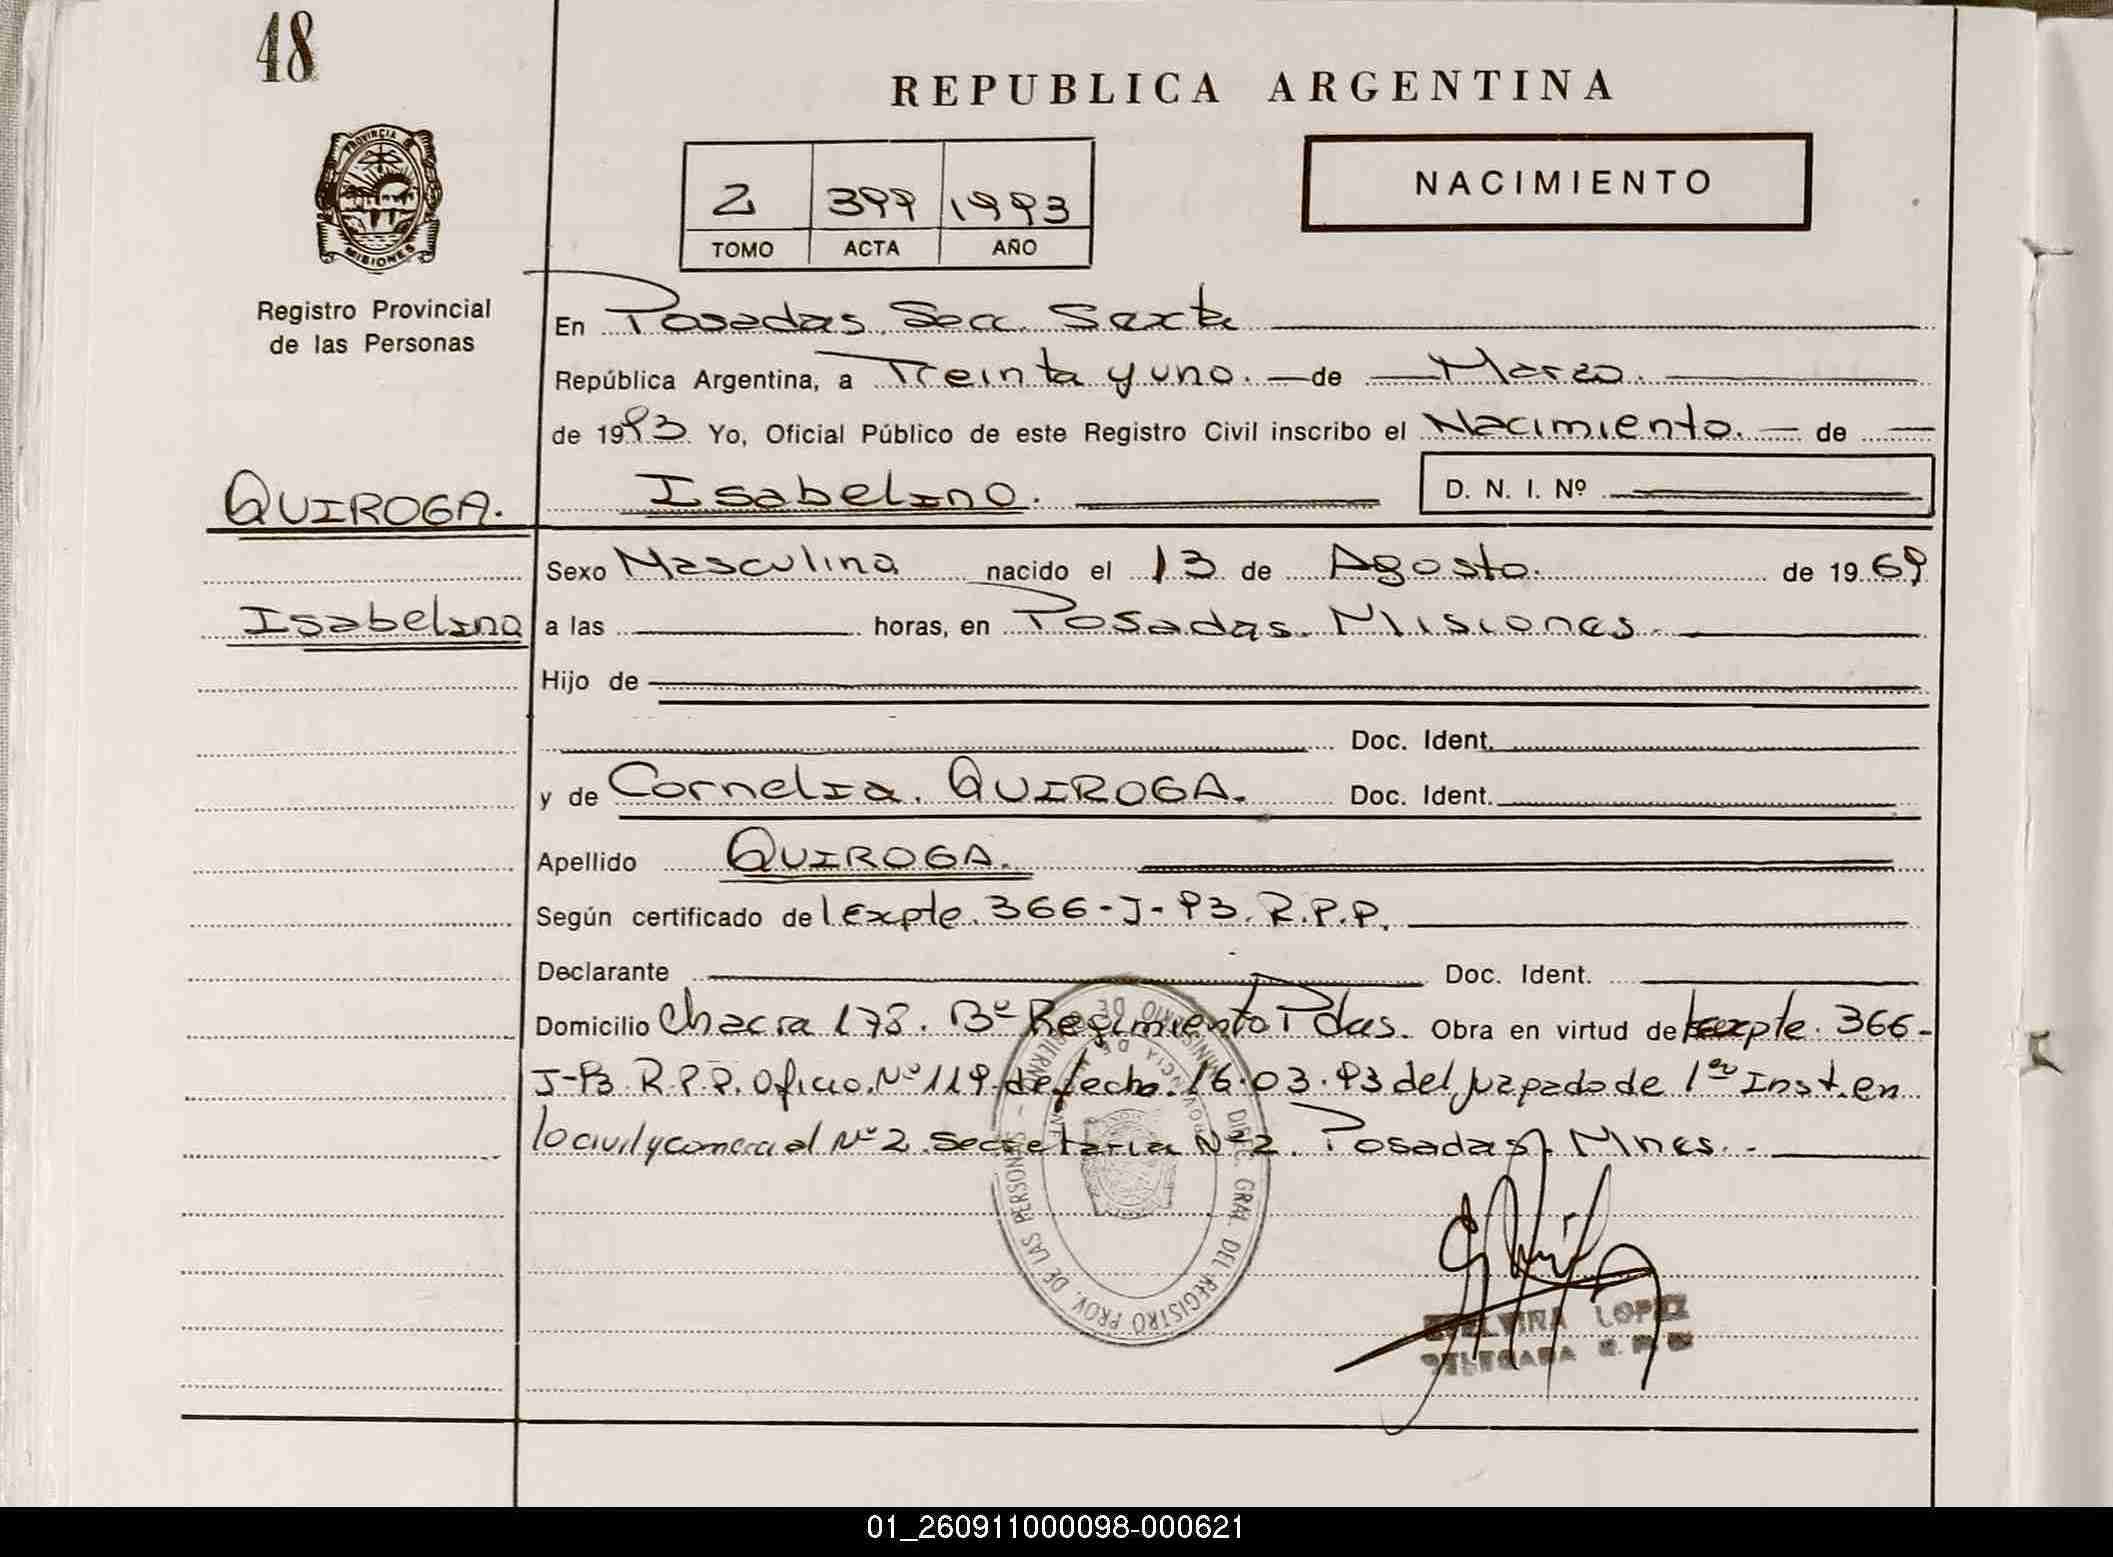 48
REPUBLICA ARGENTINA
PROVINCIA
MISIONES
Registro Provincial
de las Personas
2 399 1993
TOMO ACTA AÑO
NACIMIENTO
En Posadas Secc. Sexta
República Argentina, a Treinta y uno. de Marzo.
de 1993. Yo, Oficial Público de este Registro Civil inscribo el Nacimiento. de
QUIROGA. Isabelino. D. N. I. Nº
Sexo Masculino nacido el 13 de Agosto. de 1969
Isabelino a las horas, en Posadas. Misiones.
Hijo de
Doc. Ident.
y de Cornelia. QUIROGA. Doc. Ident.
Apellido QUIROGA.
Según certificado del Expte. 366-J-93. R.P.P.
Declarante Doc. Ident.
Domicilio Chacra 178. Bº Regimiento Pdas. Obra en virtud de expte. 366-
J-93. R.P.P. Oficio. Nº 119. de fecha. 16.03.93 del juzgado de 1er Inst. en
lo civil y comercial Nº 2. Secretaria Nº 2. Posadas. Mnes.-
DIREC. GRAL. DEL REGISTRO PROV. DE LAS PERSONAS
ELVIRA LOPEZ
DELEGADA R. P. P.
01_260911000098-000621